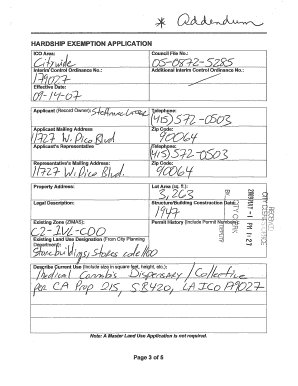 * Addendum
HARDSHIP EXEMPTION APPLICATION
ICO Area: Council File No.:
Citywide 05-0872-S285
Interim Control Ordinance No.: Additional Interim Control Ordinance No.:
179027
Effective Date:
09-14-07
Applicant (Record Owner) Telephone:
(415) 572-0503
Applicant Mailing Address Zip Code:
11727 W. Pico Blvd 90064
Applicant's Representative Telephone:
(415) 572-0503
Representative's Mailing Address: Zip Code:
11727 W. Pico Blvd. 90064
Property Address: Lot Area (sq. ft.):
3,263
Legal Description: Structure/Building Construction Date:
1947
Existing Zone (ZIMAS): Permit History (Include Permit Numbers)
C2-1VL-CDO
Existing Land Use Designation (From City Planning
Department):
Store buildings; stores code 1100
Describe Current Use (Include size in square feet, height, etc.)
Medical Cannabis Dispensary / Collective
per CA Prop 215, SB420, LA ICO 179027
Note: A Master Land Use Application is not required.
Page 3 of 5
CITY CLERK
DEPUTY
RECEIVED
CITY CLERK'S OFFICE